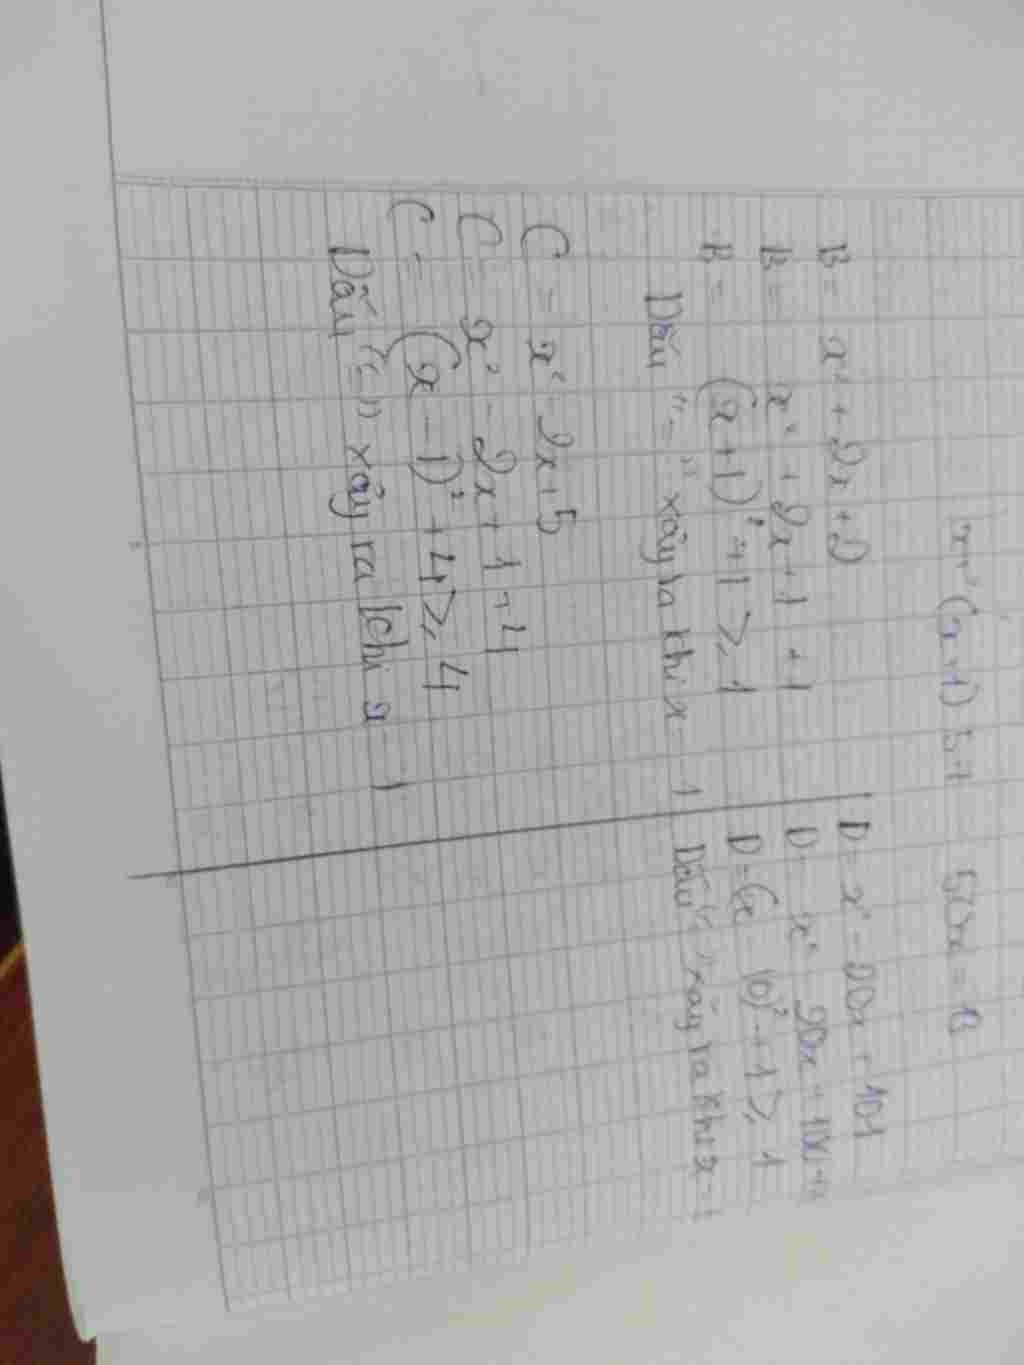 (x+1)
B = x² + 2x + 2
B = x² + 2x + 1 + 1
B = (x+1)² + 1 ≥ 1
Dấu "=" xảy ra khi x 1
C = x² - 2x + 5
C = x² - 2x + 1 + 4
C = (x - 1)² + 4 ≥ 4
Dấu "=" xảy ra khi x 1
D = x² - 20x + 101
D = x² 20x + 100 + 1
D = (x 10)² + 1 ≥ 1
Dấu xảy ra khi x